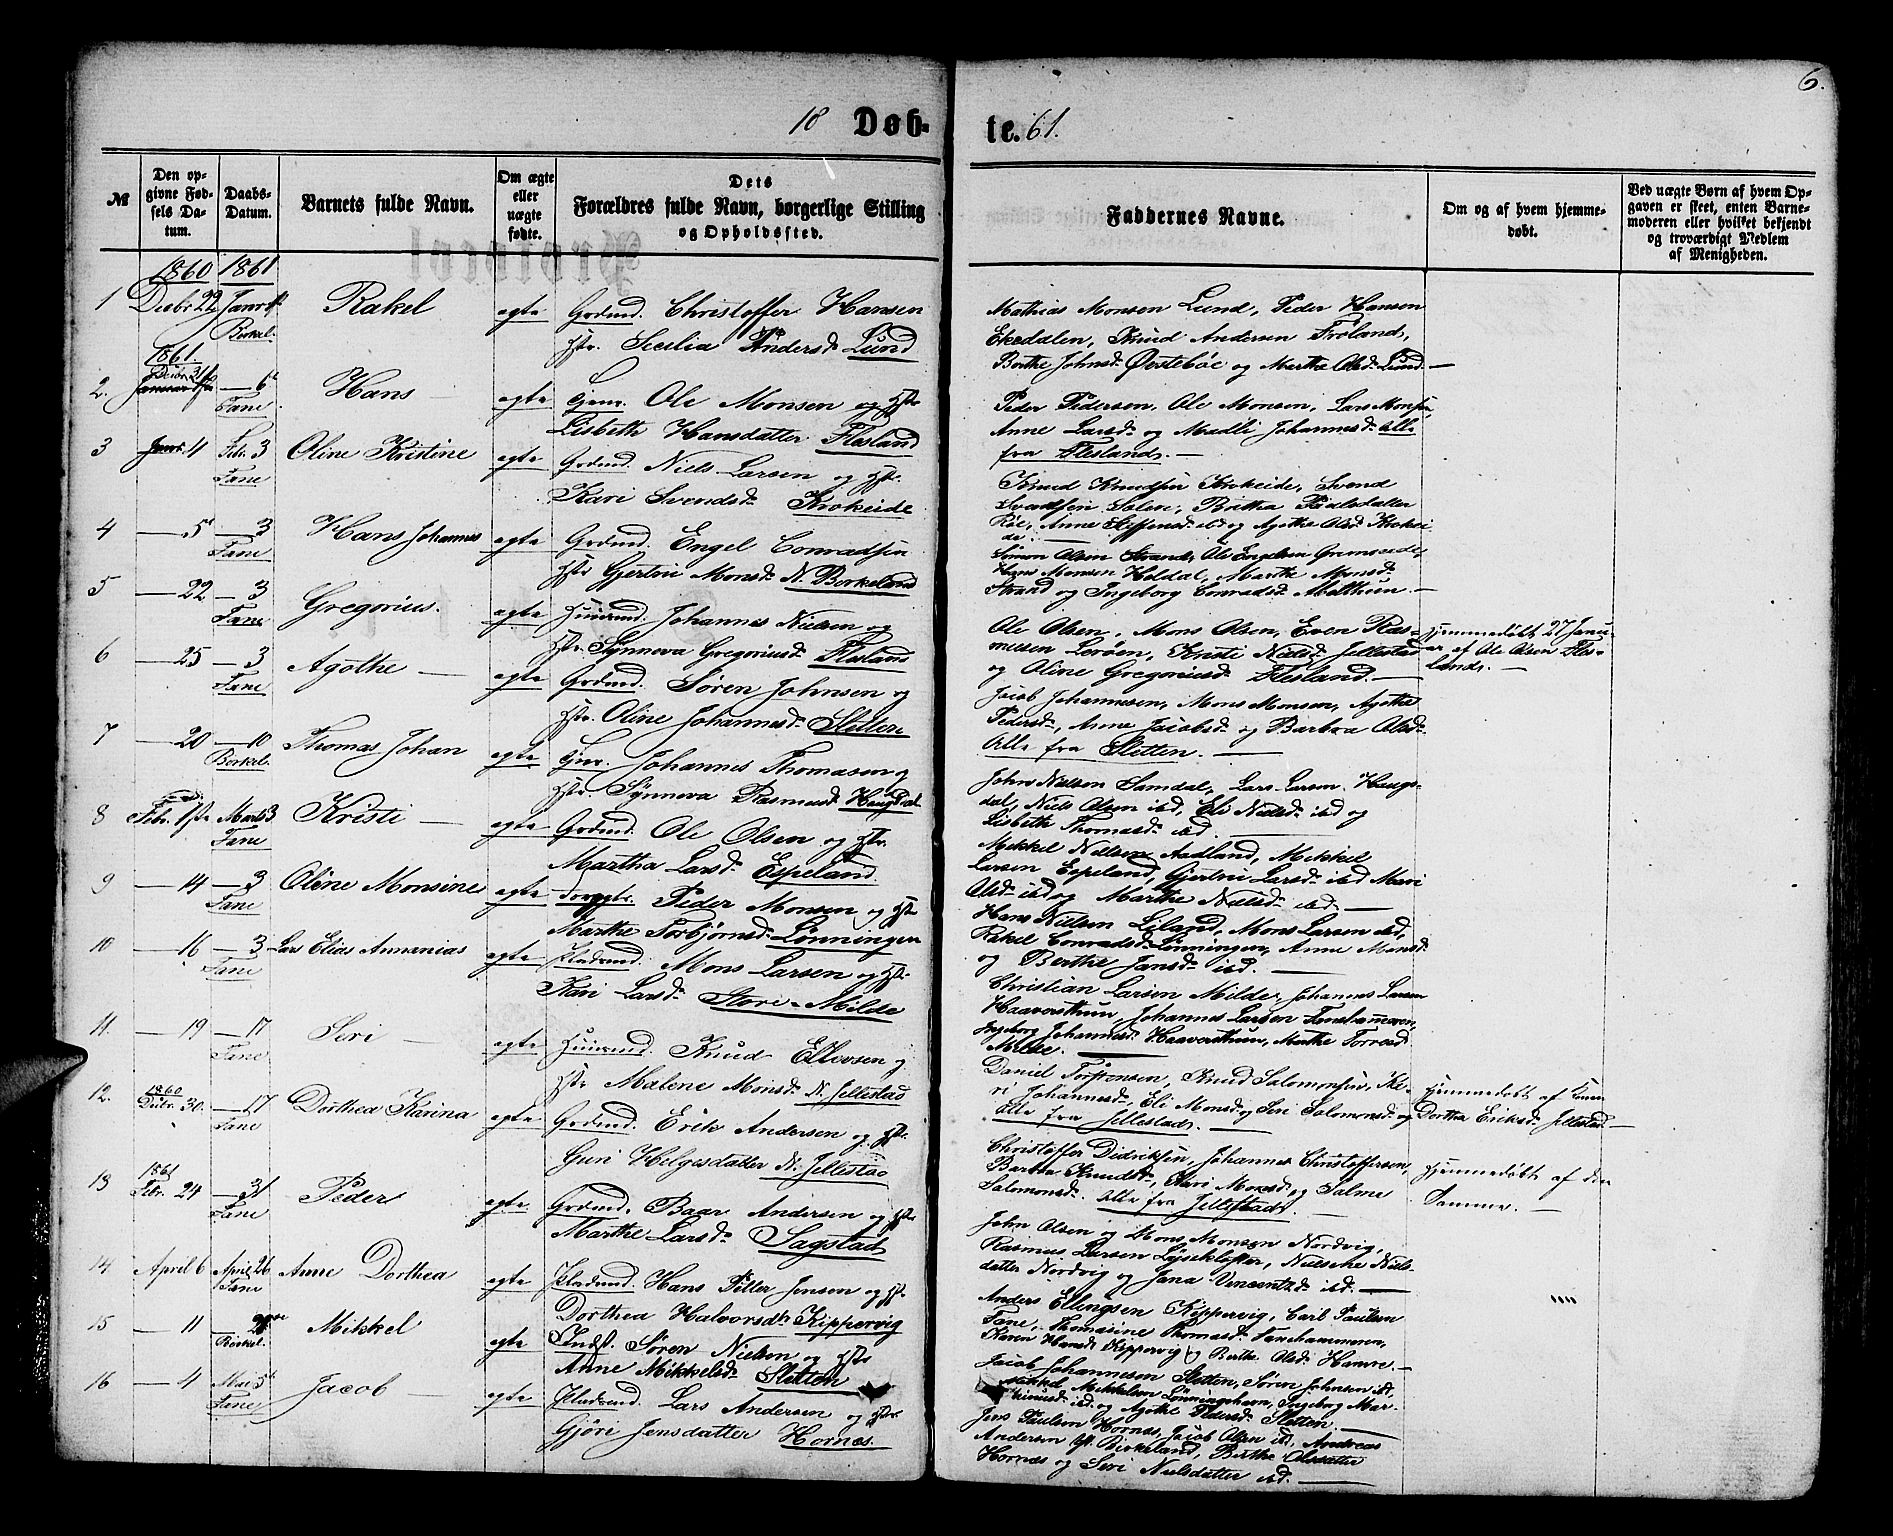 6.
18 Døb-
te. 61.
№
Den op-
givne Fød-
sels Da-
tum.
Daabs-
Datum.
Barnets fulde Navn.
Om ægte
eller
uægte
fødte.
Dets
Forældres fulde Navn, borgerlige Stilling
og Opholdssted.
Faddernes Navne.
Om og af hvem hjemme-
døbt.
Ved uægte Børn af hvem Op-
gaven er skeet, enten Barne-
moderen eller hvilket bekjendt
og troværdigt Medlem
af Menigheden.
1860 1861
1 Decbr 22 Janr Rakel egte Grdmd. Christoffer Hansen
Birkel. Hstr. Secilia Andersd. Lund
Mathias Monsen Lund, Peder Hansen
Ekedalen, Knud Andersen Frøland,
Berthe Johnsd. Øvstebøe og Marthe Olsd. Lund.
1861.
Decbr 31
2. Januar 1ste — 6te Hans egte Ole Monsen og Hstr
Fane Lisbeth Hansdatter Flesland
Peder Pedersen, Ole Monsen, Lars Monsen,
Anne Larsd. og Madli Johannesd. Alle
fra Flesland.
3 Janr. 4 Febr. 3 Oline Kristine egte Grdmd. Niels Larsen og Hstr.
Fane Kari Svendsd. Krokeide
Knud Knudsen Krokeide, Svend
Svendsen Solen, Britha
Røe, Anne Steffensd. ibd og Agothe Olsd. Krokei
de.
4 — 5 — 3 Hans Johannes egte Grdmd. Engel Conradsen
Fane Hstr Gjertru Monsd. N. Birkeland
Simon Olsen Strand, Ole Engelsen Grimseide,
Hans Monsen Heldal, Marthe Monsd.
Strand og Ingeborg Conradsd. Molthun.
5 — 22 — 3 Gregorius. egte Huusmd. Johannes Nielsen og
Fane Hstr. Synneva Gregoriusd. Flesland
Ole Olsen, Mons Olsen, Even Ras-
musen Lerøen, Kristi Nielsd. Jellestad
og Oline Gregoriusd. Flesland.
Hjemmedøbt 27 Janu-
ar af Ole Olsen Fles-
land.
6 — 25 — 3 Agothe egte Grdmd. Søren Johnsen og
Fane Hstr. Oline Johannesd. Sletten
Jacob Johannesen, Mons Monsen, Agothe
Pedersd., Anne Jacobsd. og Barbra Olsd.
Alle fra Sletten.
7 — 20 — 10 Thomas Johan egte Johannes Thomasen og
Birkel. Hstr. Synneva Rasmusd. Haugsdal
John Nielsen Samdal, Lars Larsen Haugs-
dal, Niels Olsen ibd, Eli Nielsd. ibd og
Lisbeth Thomasd. ibd.
8 Febr. 1ste Marts 3 Kristi egte Grdmd. Ole Olsen og Hstr.
Fane Martha Larsd. Espeland
Mikkel Nielsen Aadland, Mikkel
Larsen Espeland, Gjertru Larsd. ibd Mari
Olsd. ibd og Marthe Nielsd. ibd.
9 — 14 — 3 Oline Monsine egte Peder Monsen og Hstr
Fane Marthe Torbjørnsd. Lønningen
Hans Nielsen Liland, Mons Larsen ibd,
Rakel Conradsd. Lønningen, Anne Monsd.
og Berthe Jansd. ibd.
10 — 16 — 3 Lars Elias Annanias egte Pladsmd. Mons Larsen og Hstr.
Fane Kari Larsd. Store-Milde
Christian Larsen Milde, Johannes Larsen
Haaversthun, Johannes Larsen Fanehammeren,
Ingeborg Johannesd. Haaversthun, Marthe
Milde.
11. — 19 — 17 Seri egte Huusmd. Knud Ellevsen og
Fane Hstr Malene Monsd. N. Jellestad
Daniel Torstensen, Knud Salomonsen,
Johannesd., Eli Monsd. og Seri Salomonsd. og
alle fra Jellestad.
1860
12. Decbr. 30. — 17 Dorthea Karina egte Grdmd. Erik Andersen og Hstr.
Fane Guri Helgesdatter N. Jellestad
Christoffer Didriksen, Johannes Christoffersen,
Barbra Knudsd., Kari Monsd. og Salme
Salomonsd. alle fra Jellestad.
Hjemmedøbt af
Dorthea Eriksd. Jellestad
1861
13 Febr. 24 — 31 Peder egte Grdmd. Baar Andersen og Hstr
Fane Marthe Larsd. Sagstad
John Olsen og Mons Monsen Nordvig,
Rasmus Larsen Lysekloster, Nielsine Niels-
datter Nordvig og Jana Vincentsd. ibd.
Hjemmedøbt af den
Samme.
14 April 6 April 26 Anne Dorthea egte Pladsmd. Hans Pitter Jensen og Hstr.
Fane Dorthea Halvorsd. Kippervig
Anders Ellingsen Kippervig, Carl Paulsen
Fane, Thomasine Thomasd. Fanehammeren,
Karen Hansd. Kippervig og Berthe Olsd. Hamre.
15 — 11 Mikkel egte Indst. Søren Nielsen og Hstr
Birkel. Anne Mikkelsd. Sletten
Jacob Johannesen Sletten, Søren Johnsen ibd,
Mikkelsen Lønningshavn, Ingeborg Mar-
ibd og Agothe Pedersd. Sletten.
16 — 4 Mai 5te Jacob egte Pladsmd. Lars Andersen og Hstr.
Fane Gjøri Jensdatter Hornæs.
Jens Paulsen Hornæs, Jacob Olsen ibd, Andreas
Andersen Birkeland, Berthe Olsdatter
Hornæs og Seri Nielsdatter ibd.